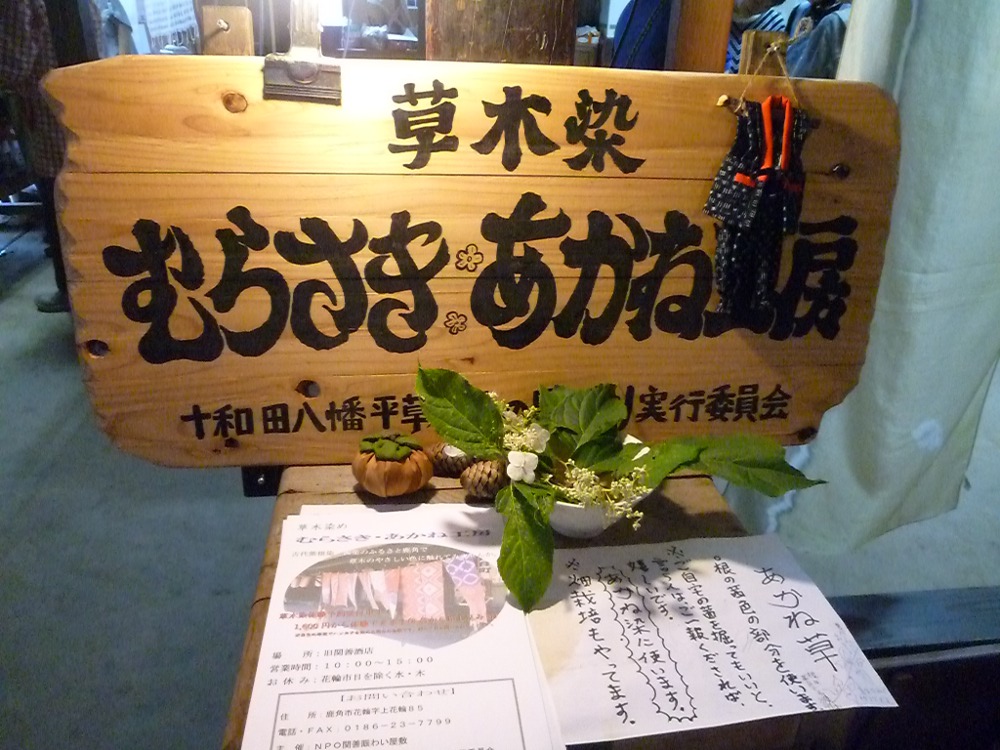 草木染
むらさき・あかね工房
十和田八幡平草 の 実行委員会
草木染め
むらさき・あかね工房
のふるさと鹿角で
草木のやさしい色に触れてみ
1,600円から
場 所：旧関善酒店
営業時間：10:00～15:00
お休み：花輪市日を除く水・木
【お問い合わせ】
住 所：鹿角市花輪字上花輪85
電話・FAX：0186-23-7799
主 催：NPO関善賑わい屋敷
あかね草
○根の茜色の部分を使います
※ご自宅の茜を掘ってもいいと、
言う方はご一報くだされば、
嬉しいです。
あかね染に使います。
※畑栽培もやってます。